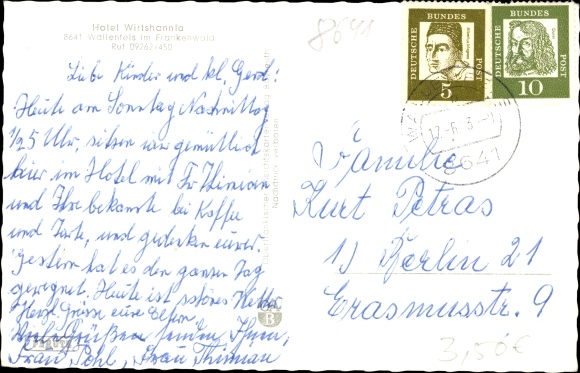 Hotel Wirtshannla
8641 Wallenfels im Frankenwald
Ruf 09262/450
Liebe Kinder und kl. Gerd!
Heute am Sonntag Nachmittag
1/2 5 Uhr, sitzen wir gemütlich
hier im Hotel mit Fr. Thimian
und Ihre bekannte bei Kaffee
und Torte, und gedenken eurer.
Gestern hat es den ganzen Tag
geregnet. Heute ist schönes Wetter
Herzl. Grüsse eure Eltern
Viele Grüße senden Ihnen,
Frau Pohl, Frau Thimian
8641
DEUTSCHE BUNDES POST
5
DEUTSCHE BUNDES POST
10
8641
Familie
Kurt Petras
1) Berlin 21
Erasmusstr. 9
3,50€